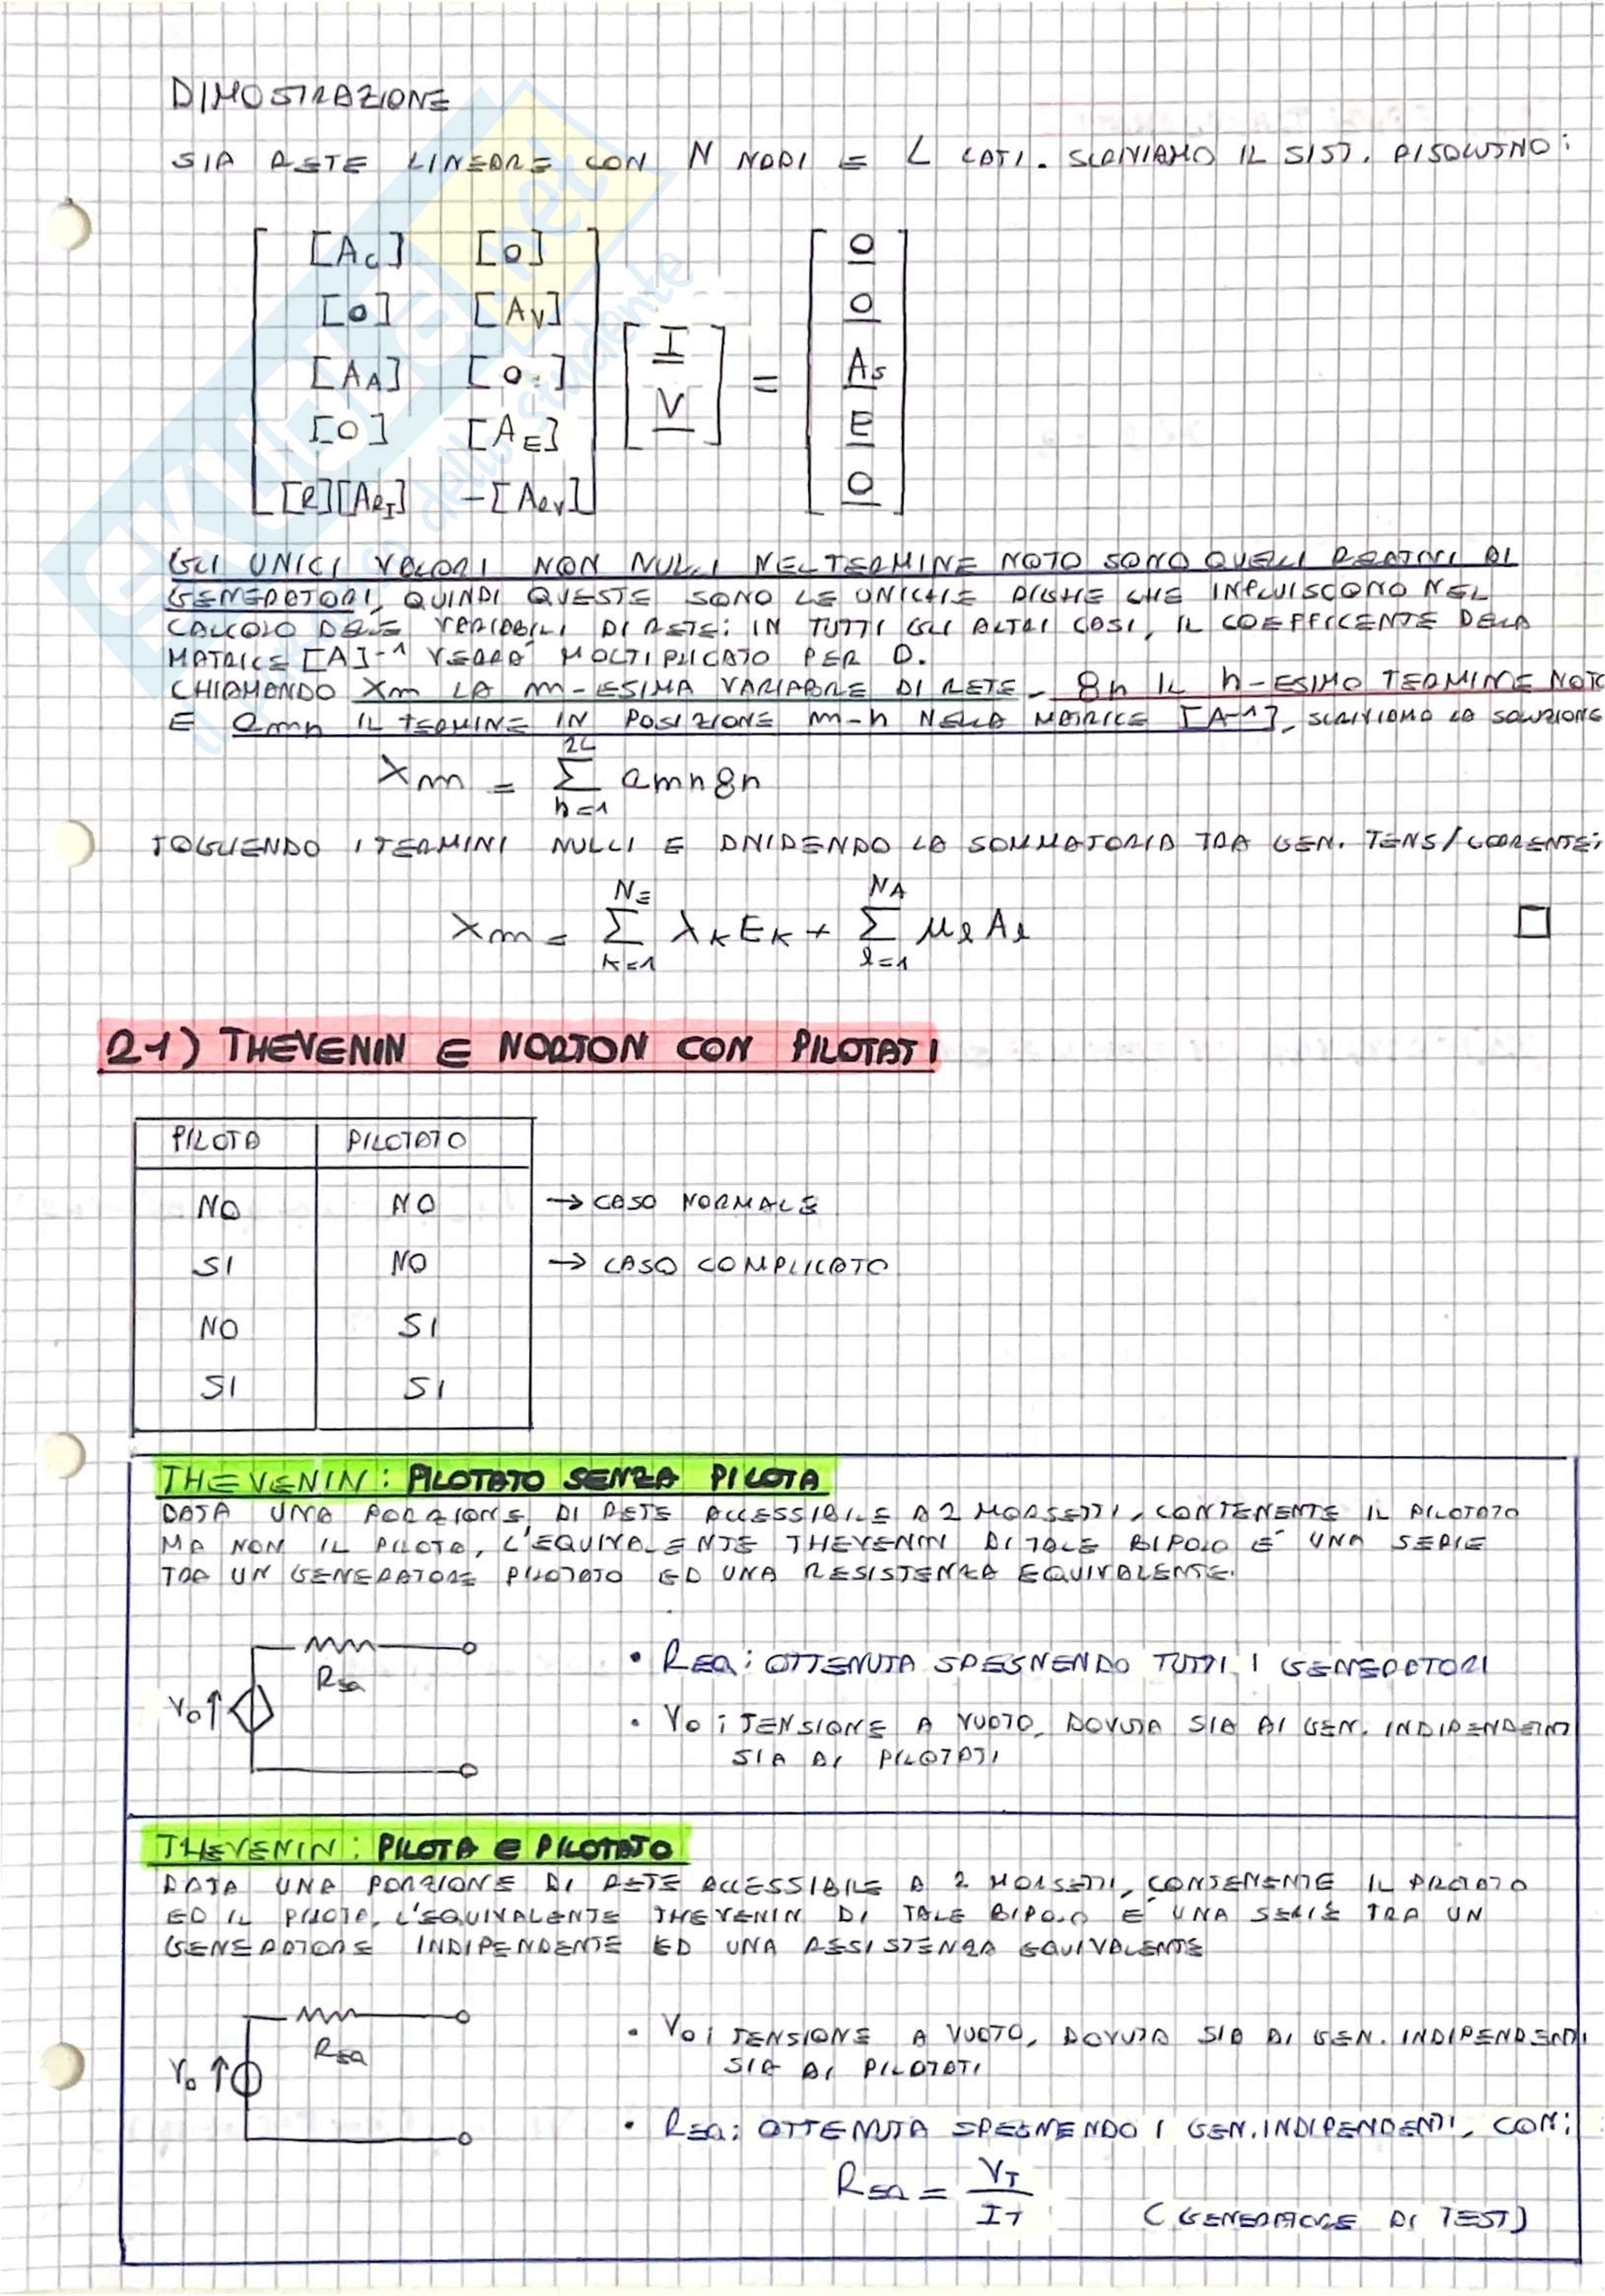 DIMOSTRAZIONE
SIA RETE LINEARE CON N NODI E L LATI. SCRIVIAMO IL SIST. RISOLUTIVO:
[Ac] [0]
[0] [Av]
[AA] [0]
[0] [AE]
[R][ARI] -[ARV]
I
V
=
0
0
As
E
0
GLI UNICI VALORI NON NULLI NEL TERMINE NOTO SONO QUELLI RELATIVI AI
GENERATORI, QUINDI QUESTE SONO LE UNICHE RIGHE CHE INFLUISCONO NEL
CALCOLO DELLE VARIABILI DI RETE: IN TUTTI GLI ALTRI CASI, IL COEFFICENTE DELLA
MATRICE [A]⁻¹ VERRA' MOLTIPLICATO PER 0.
CHIAMANDO Xm LA m-ESIMA VARIABILE DI RETE, gn IL n-ESIMO TERMINE NOTO
E amn IL TERMINE IN POSIZIONE m-n NELLA MATRICE [A⁻¹], SCRIVIAMO LA SOLUZIONE
Xm = Σ(n=1, 2L) amn gn
TOGLIENDO I TERMINI NULLI E DIVIDENDO LA SOMMATORIA TRA GEN. TENS/CORRENTE:
Xm = Σ(k=1, NE) λk Ek + Σ(l=1, NA) μl Al □
21) THEVENIN E NORTON CON PILOTATI
PILOTA PILOTATO
NO NO → CASO NORMALE
SI NO → CASO COMPLICATO
NO SI
SI SI
THEVENIN: PILOTATO SENZA PILOTA
DATA UNA PORZIONE DI RETE ACCESSIBILE A 2 MORSETTI, CONTENENTE IL PILOTATO
MA NON IL PILOTA, L'EQUIVALENTE THEVENIN DI TALE BIPOLO E' UNA SERIE
TRA UN GENERATORE PILOTATO ED UNA RESISTENZA EQUIVALENTE.
REQ
V0 ↑
• REQ: OTTENUTA SPEGNENDO TUTTI I GENERATORI
• V0: TENSIONE A VUOTO, DOVUTA SIA AI GEN. INDIPENDENTI
SIA AI PILOTATI
THEVENIN: PILOTA E PILOTATO
DATA UNA PORZIONE DI RETE ACCESSIBILE A 2 MORSETTI, CONTENENTE IL PILOTATO
ED IL PILOTA, L'EQUIVALENTE THEVENIN DI TALE BIPOLO E' UNA SERIE TRA UN
GENERATORE INDIPENDENTE ED UNA RESISTENZA EQUIVALENTE
REQ
V0 ↑
• V0: TENSIONE A VUOTO, DOVUTA SIA AI GEN. INDIPENDENTI
SIA AI PILOTATI
• REQ: OTTENUTA SPEGNENDO I GEN. INDIPENDENTI, CON:
REQ = VT / IT (GENERATORE DI TEST)